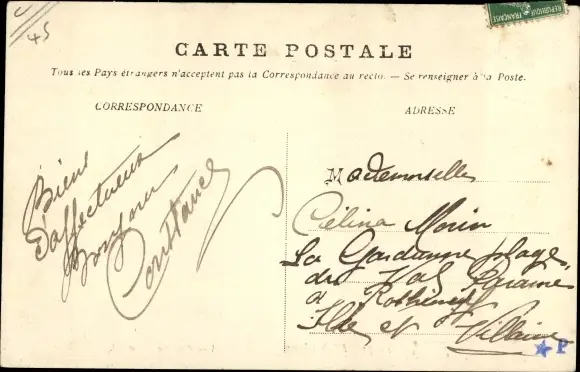 45
RÉPUBLIQUE FRANÇAISE
CARTE POSTALE
Tous les Pays étrangers n'acceptent pas la Correspondance au recto. — Se renseigner à la Poste.
CORRESPONDANCE
Biens
d'affectueux
Bonjours
Constance
ADRESSE
Mademoiselle
Célina Morin
La Gardanne plage
du Val Paramé
à Rothéneuf
Ille et Villaine
P